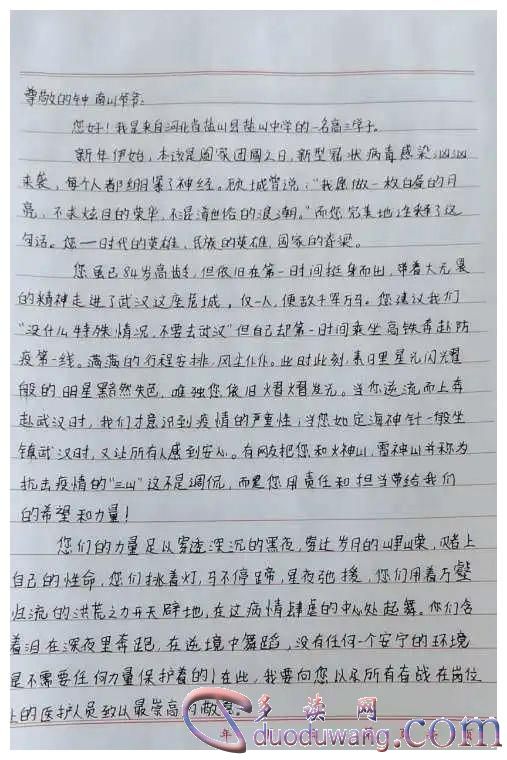 尊敬的钟南山爷爷:
您好!我是来自河北省盐山县盐山中学的一名高三学子。
新年伊始,本该是阖家团圆之日,新型冠状病毒感染汹汹
来袭,每个人都绷紧了神经。顾城曾说:"我愿做一枚白昼的月
亮,不求炫目的荣华,不混淆世俗的浪潮。"而您完美地诠释了这
句话。您一一时代的英雄、民族的英雄、国家的脊梁。
您虽已84岁高龄,但依旧在第一时间挺身而出,带着大无畏
的精神走进了武汉这座危城,仅一人,便敌千军万马。您建议我们
"没什么特殊情况,不要去武汉"但自己却第一时间乘坐高铁奔赴防
疫第一线。满满的行程安排,风尘仆仆。此时此刻,素日里星光闪耀
般的明星黯然失色,唯独您依旧熠熠发光。当您逆流而上奔
赴武汉时,我们才意识到疫情的严重性;当您如定海神针一般坐
镇武汉时,又让所有人感到安心。有网友把您和火神山,雷神山并称为
抗击疫情的"三山"这不是调侃,而是您用责任和担当带给我们
的希望和力量!
您们的力量足以穿透深沉的黑夜,穿过岁月的峥嵘,赌上
自己的性命,您们挑着灯,马不停蹄,星夜驰援,您们用着万壑
归流的洪荒之力开天辟地,在这病情肆虐的中心处起舞。您们含
着泪在深夜里奔跑,在逆境中舞蹈,没有任何一个安宁的环境
是不需要任何力量保护着的!在此,我要向您以及所有奋战在岗位
上的医护人员致以最崇高的敬意。
多读网
duoduwang.com
年 月 日 第 页